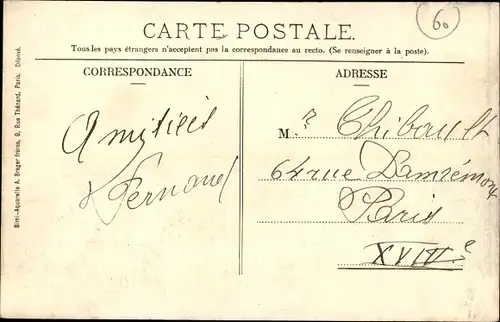 CARTE POSTALE.
60
Tous les pays étrangers n'acceptent pas la correspondance au recto. (Se renseigner à la poste).
CORRESPONDANCE
ADRESSE
Simi-Aquarelle A. Breger frères, 9, Rue Thénard, Paris. Déposé.
Amitiés
Fernand
M.r Thibault
64 rue Damrémont
Paris
XVIIIe